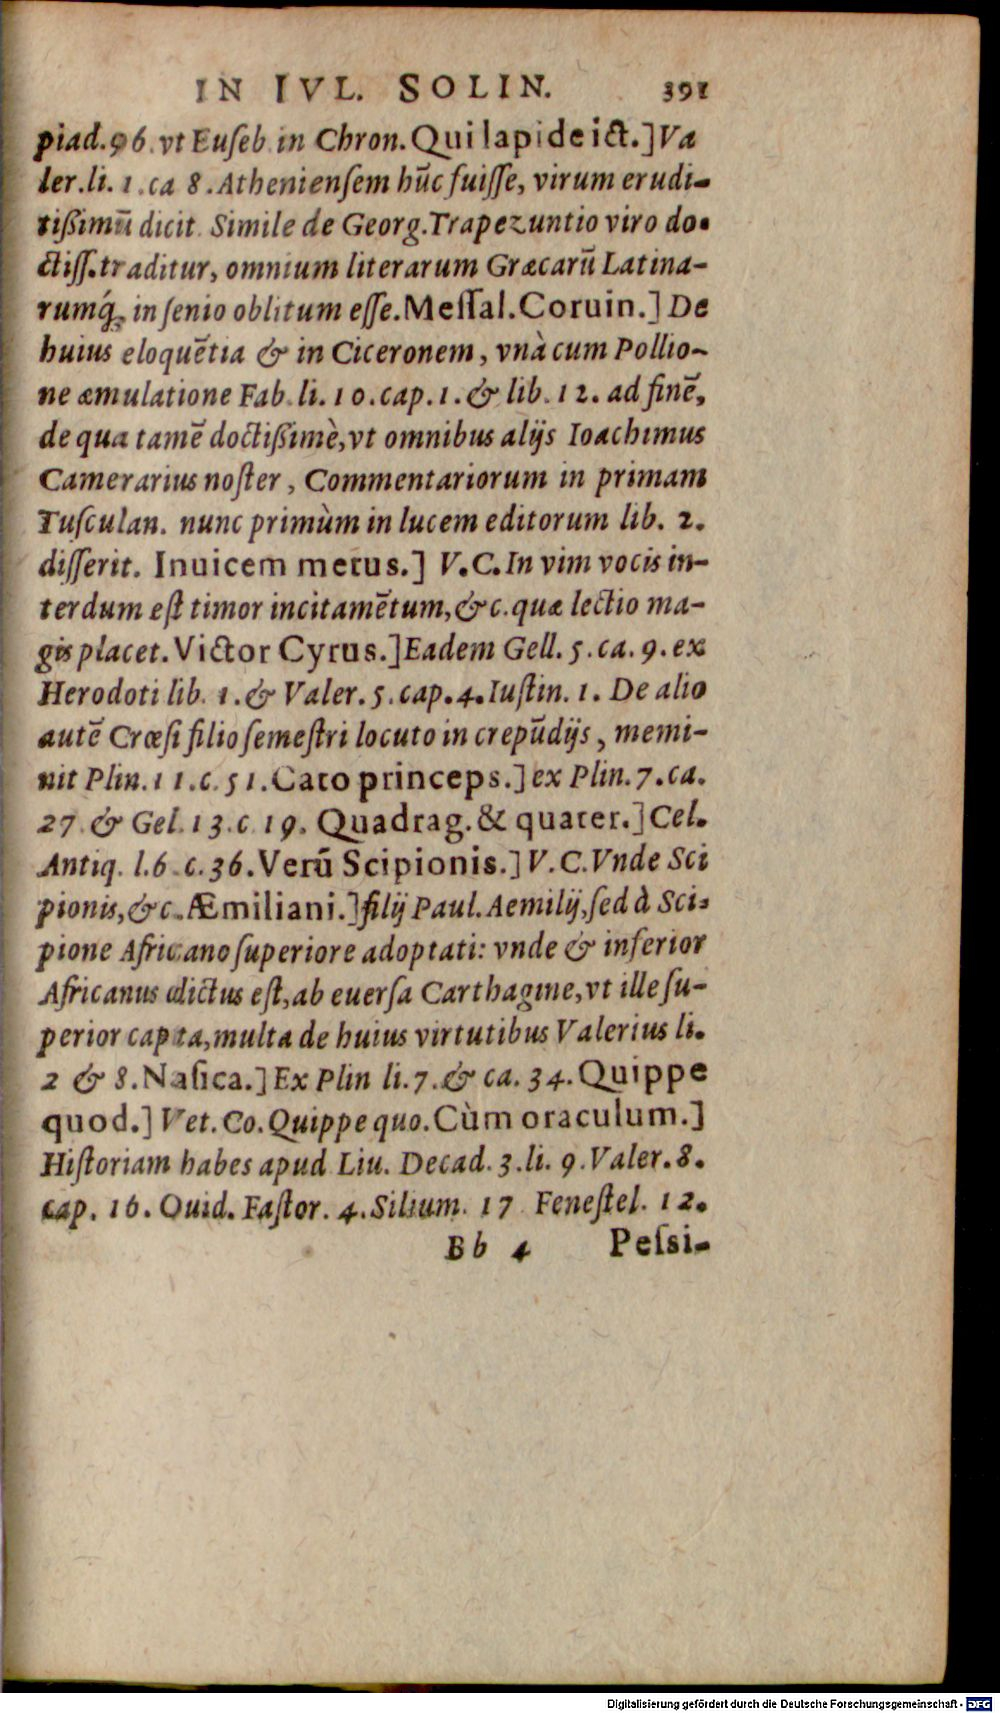 IN IVL. SOLIN. 391
piad.96.vt Euſeb.in Chron.Qui lapide ict.]Va
ler.li. 1.ca 8.Athenienſem hūc fuiſſe, virum erudi-
tißimū dicit. Simile de Georg.Trapezuntio viro do-
ctiſſ.traditur, omnium literarum Græcarū Latina-
rumq́, in ſenio oblitum eſſe.Meſſal.Coruin.] De
huius eloquētia & in Ciceronem, vnà cum Pollio-
ne æmulatione Fab.li. 10.cap.1.& lib.12. ad finē,
de qua tamē doctißimè,vt omnibus alijs Ioachimus
Camerarius noſter, Commentariorum in primam
Tuſculan. nunc primùm in lucem editorum lib. 2.
diſſerit. Inuicem metus.] V.C.In vim vocis in-
terdum eſt timor incitamētum,&c.quæ lectio ma-
gis placet.Victor Cyrus.]Eadem Gell. 5.ca. 9.ex
Herodoti lib. 1.& Valer.5.cap.4.Iuſtin. 1. De alio
autē Crœſi filio ſemeſtri locuto in crepūdijs, memi-
nit Plin.11.c.51.Cato princeps.]ex Plin.7.ca.
27.& Gel.13.c.19. Quadrag.& quater.]Cel.
Antiq. l.6.c.36.Verū Scipionis.]V.C.Vnde Sci
pionis,&c.Æmiliani.]filij Paul.Aemilij,ſed à Sci-
pione Africano ſuperiore adoptati: vnde & inferior
Africanus dictus eſt,ab euerſa Carthagine,vt ille ſu-
perior capta,multa de huius virtutibus Valerius li.
2 & 8.Naſica.]Ex Plin li.7.& ca. 34.Quippe
quod.] Vet.Co.Quippe quo.Cùm oraculum.]
Hiſtoriam habes apud Liu. Decad.3.li. 9.Valer.8.
cap. 16. Ouid. Faſtor. 4.Silium. 17 Feneſtel. 12.
Bb 4 Peſsi-
Digitalisierung gefördert durch die Deutsche Forschungsgemeinschaft - DFG